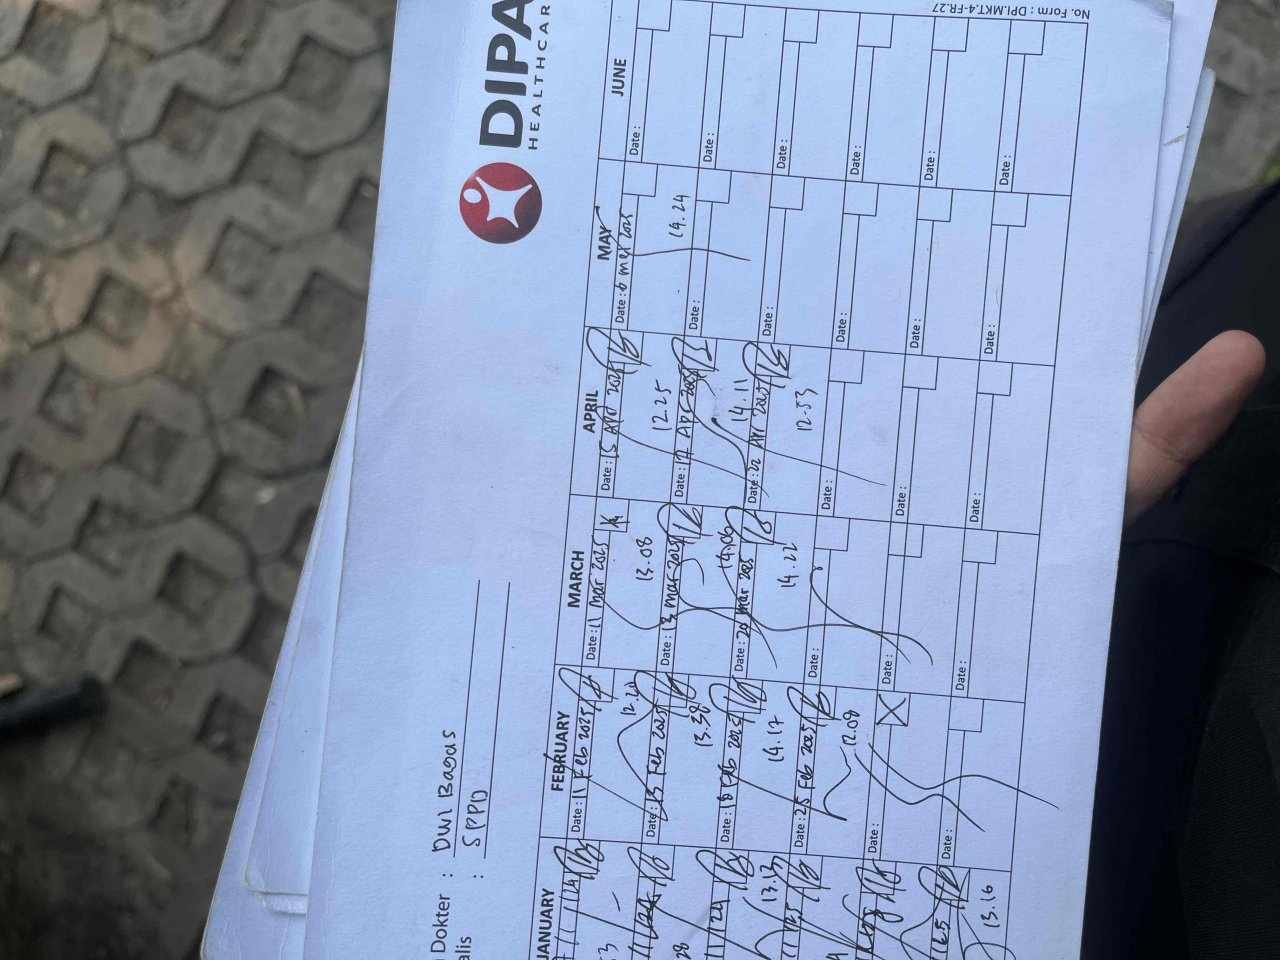 DIPA
HEALTHCAR
Dokter : DWI Bagas
alis : SPPD
JANUARY
13.13
13.16
FEBRUARY
Date : 11 Feb 2025
Date : 13 Feb 2025
13.38
Date : 18 Feb 2025
14.17
Date : 25 Feb 2025
12.09
Date :
Date :
MARCH
Date : 11 Mar 2025
13.08
Date : 13 Mar 2025
14.06
Date : 20 Mar 2025
14.22
Date :
Date :
Date :
APRIL
Date : 15 Apr 2025
12.25
Date : 17 Apr 2025
14.11
Date : 22 Apr 2025
12.53
Date :
Date :
Date :
MAY
Date : 6 mei 2025
14.24
Date :
Date :
Date :
Date :
Date :
JUNE
Date :
Date :
Date :
Date :
Date :
Date :
No. Form : DPI.MKT.4-FR.27